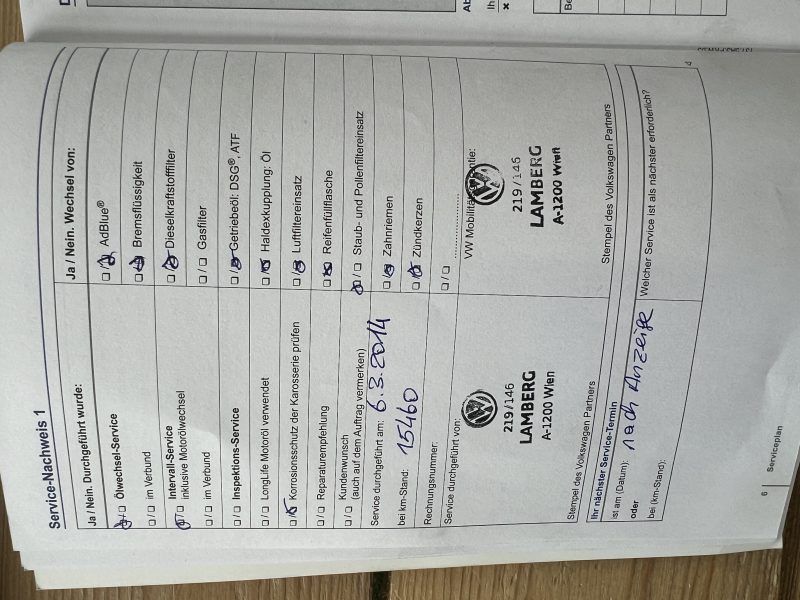 Service-Nachweis 1
Ja / Nein. Durchgeführt wurde:
Ölwechsel-Service
im Verbund
Intervall-Service
inklusive Motorölwechsel
im Verbund
Inspektions-Service
LongLife Motoröl verwendet
Korrosionsschutz der Karosserie prüfen
Reparaturempfehlung
Kundenwunsch
(auch auf dem Auftrag vermerken)
Service durchgeführt am: 6.3.2014
bei km-Stand: 15460
Rechnungsnummer:
Service durchgeführt von:
219/146
LAMBERG
A-1200 Wien
Stempel des Volkswagen Partners
Ja / Nein. Wechsel von:
AdBlue®
Bremsflüssigkeit
Dieselkraftstofffilter
Gasfilter
Getriebeöl: DSG®, ATF
Haldexkupplung: Öl
Luftfiltereinsatz
Reifenfüllflasche
Staub- und Pollenfiltereinsatz
Zahnriemen
Zündkerzen
VW Mobilitätsgarantie:
219/146
LAMBERG
A-1200 Wien
Stempel des Volkswagen Partners
Ihr nächster Service-Termin
ist am (Datum): nach Anzeige
oder
bei (km-Stand):
Welcher Service ist als nächster erforderlich?
6
Serviceplan